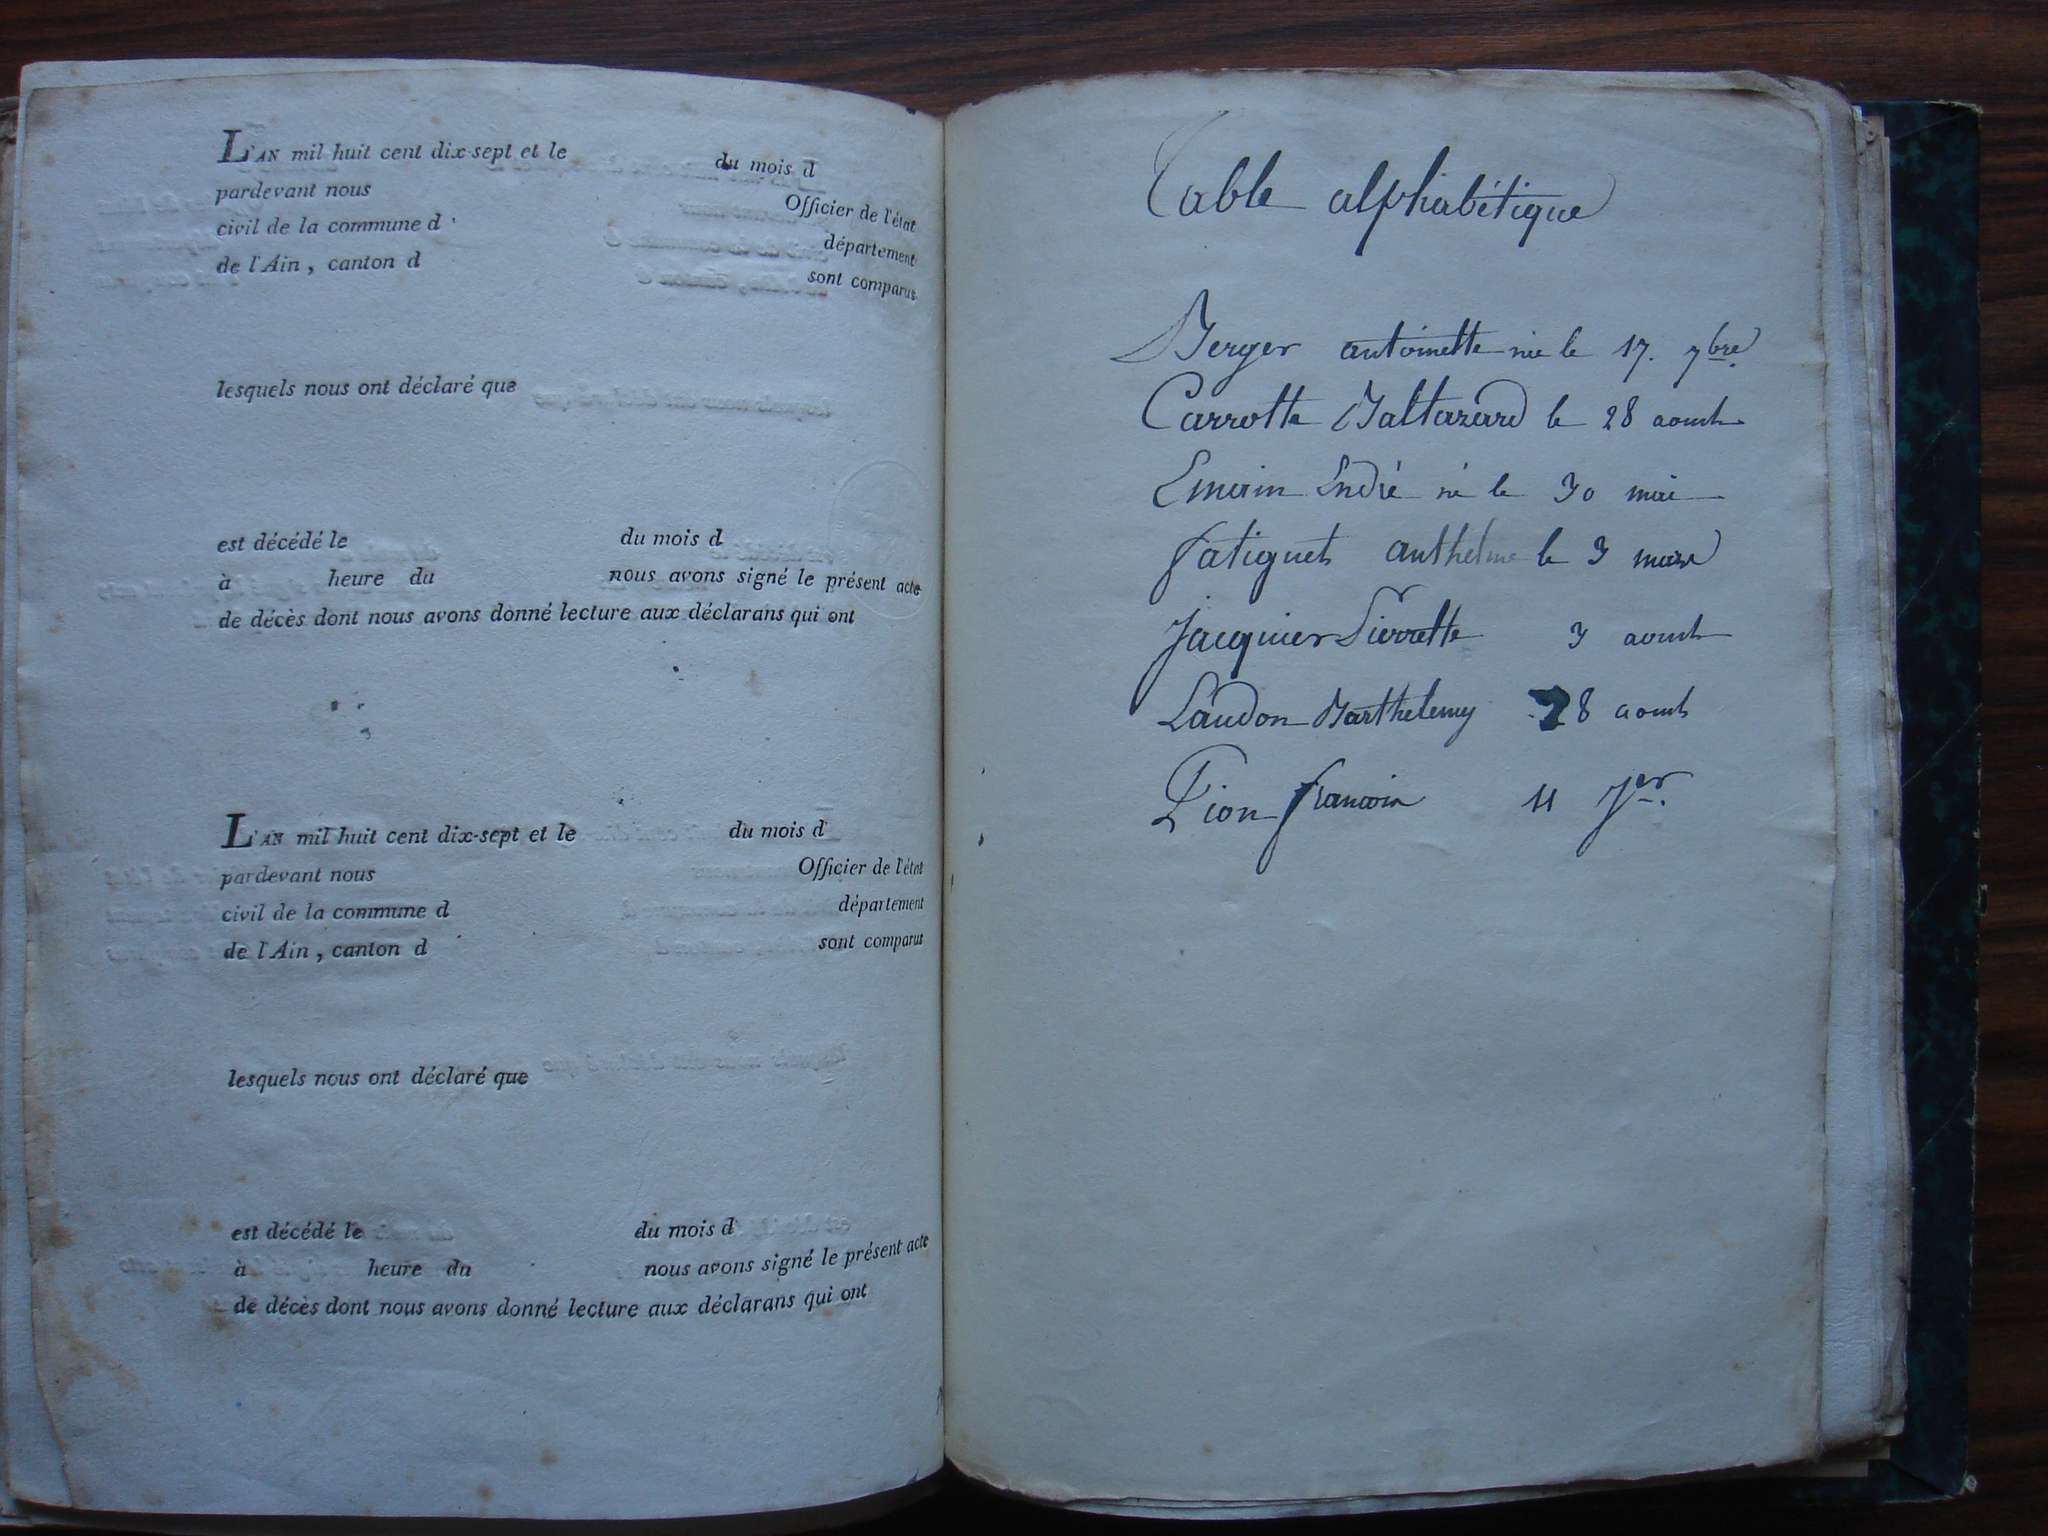 L'AN mil huit cent dix-sept et le du mois d
pardevant nous Officier de l'état
civil de la commune d département
de l'Ain, canton d sont comparus
lesquels nous ont déclaré que
est décédé le du mois d
à heure du nous avons signé le présent acte
de décès dont nous avons donné lecture aux déclarans qui ont
L'AN mil huit cent dix-sept et le du mois d
pardevant nous Officier de l'état
civil de la commune d département
de l'Ain, canton d sont comparus
lesquels nous ont déclaré que
est décédé le du mois d
à heure du nous avons signé le présent acte
de décès dont nous avons donné lecture aux déclarans qui ont
Table alphabétique
Berger antoinette née le 17. 7bre.
Carrotte Baltazard le 28 aoust
Emain André né le 30 mai
fatiguet anthelme le 3 mars
Jacquier Pierrette 3 aoust
Laudon Barthelemy 28 aoust
Pion francois 11 Jer.